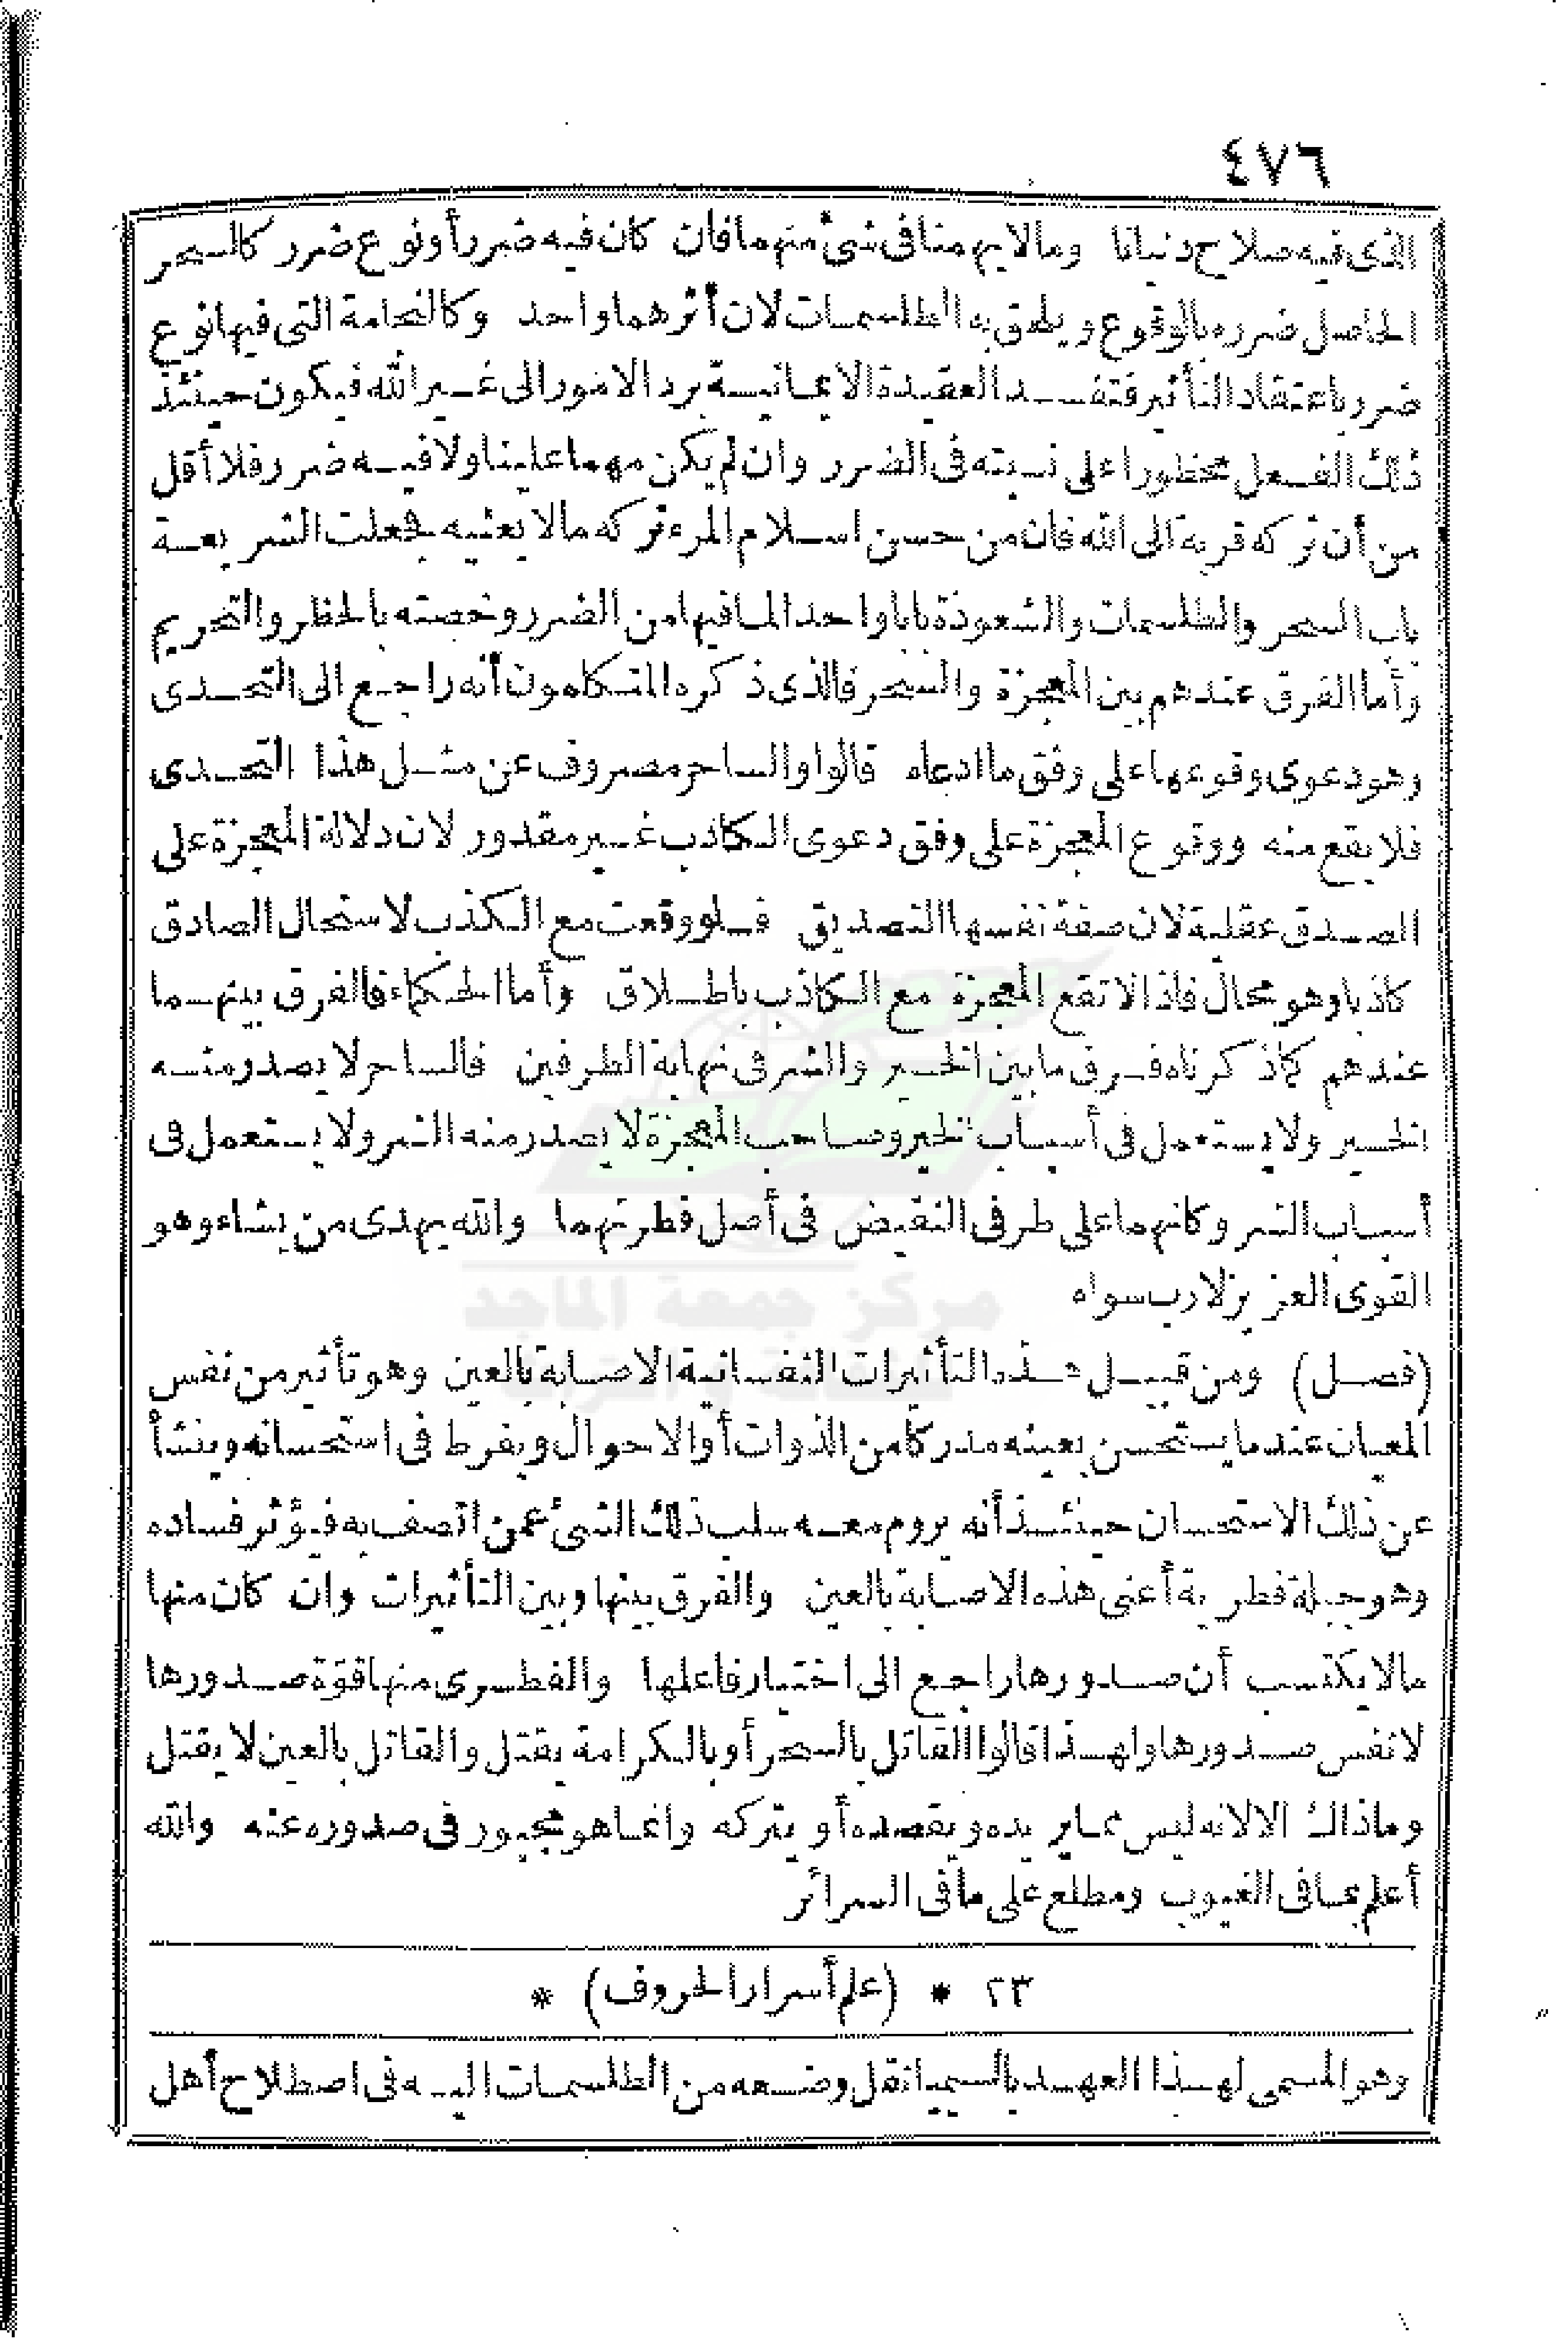 ٤٧٦
الذى فيه صلاح دنيانا وما لا يهمنا فى شئ منهما فان كان فيه ضرر أونوع ضرر كالسحر
الحاصل ضرره بالوقوع ويلحق به الطلسمات لان أثرهما واحد وكالنجامة التى فيها نوع
ضرر باعتقاد التأثير فتفسد العقيدة الايمانية برد الامور الى غير الله فيكون حينئذ
ذلك الفعل محظورا على نسبته فى الضرر وان لم يكن مهما علينا ولا فيه ضرر فلا أقل
من أن تركه قربة الى الله فان من حسن اسلام المرء تركه مالا يعنيه فجعلت الشريعة
باب السحر والطلسمات والشعوذة بابا واحدا لما فيها من الضرر وخصته بالحظر والتحريم
وأما الفرق عندهم بين المعجزة والسحر فالذى ذكره المتكلمون أنه راجع الى التحدى
وهو دعوى وقوعها على وفق ما ادعاه قالوا والساحر مصروف عن مثل هذا التحدى
فلا يقع منه ووقوع المعجزة على وفق دعوى الكاذب غير مقدور لان دلالة المعجزة على
الصدق عقلية لان صفة نفسها التصديق فلو وقعت مع الكذب لاستحال الصادق
كاذبا وهو محال فاذا لا تقع المعجزة مع الكاذب باطلاق وأما الحكماء فالفرق بينهما
عندهم كما ذكرناه فرق ما بين الخير والشر فى نهاية الطرفين فالساحر لا يصدر منه
الخير ولا يستعمل فى أسباب الخير وصاحب المعجزة لا يصدر منه الشر ولا يستعمل فى
أسباب الشر وكانهما على طرفى النقيض فى أصل فطرتهما والله يهدى من يشاء وهو
القوى العزيز لا رب سواه
(فصل) ومن قبيل هذه التأثيرات النفسانية الاصابة بالعين وهو تأثير من نفس
المعيان عندما يستحسن بعينه مدركا من الذوات أو الاحوال ويفرط فى استحسانه وينشأ
عن ذلك الاستحسان حينئذ أنه يروم معه سلب ذلك الشئ عمن اتصف به فيؤثر فساده
وهو جبلة فطرية أعنى هذه الاصابة بالعين والفرق بينها وبين التأثيرات وان كان منها
مالا يكتسب أن صدورها راجع الى اختيار فاعلها والفطرى منها قوة صدورها
لا نفس صدورها ولهذا قالوا القاتل بالسحر أو بالكرامة يقتل والقاتل بالعين لا يقتل
وما ذاك الا لانه ليس مما يريده ويقصده أو يتركه وانما هو مجبور فى صدوره عنه والله
أعلم بما فى الغيوب ومطلع على ما فى السرائر
٢٣ * (علم أسرار الحروف) *
وهو المسمى لهذا العهد بالسيميا نقل وضعه من الطلسمات اليه فى اصطلاح أهل
مركز جمعة الماجد
للثقافة والتراث